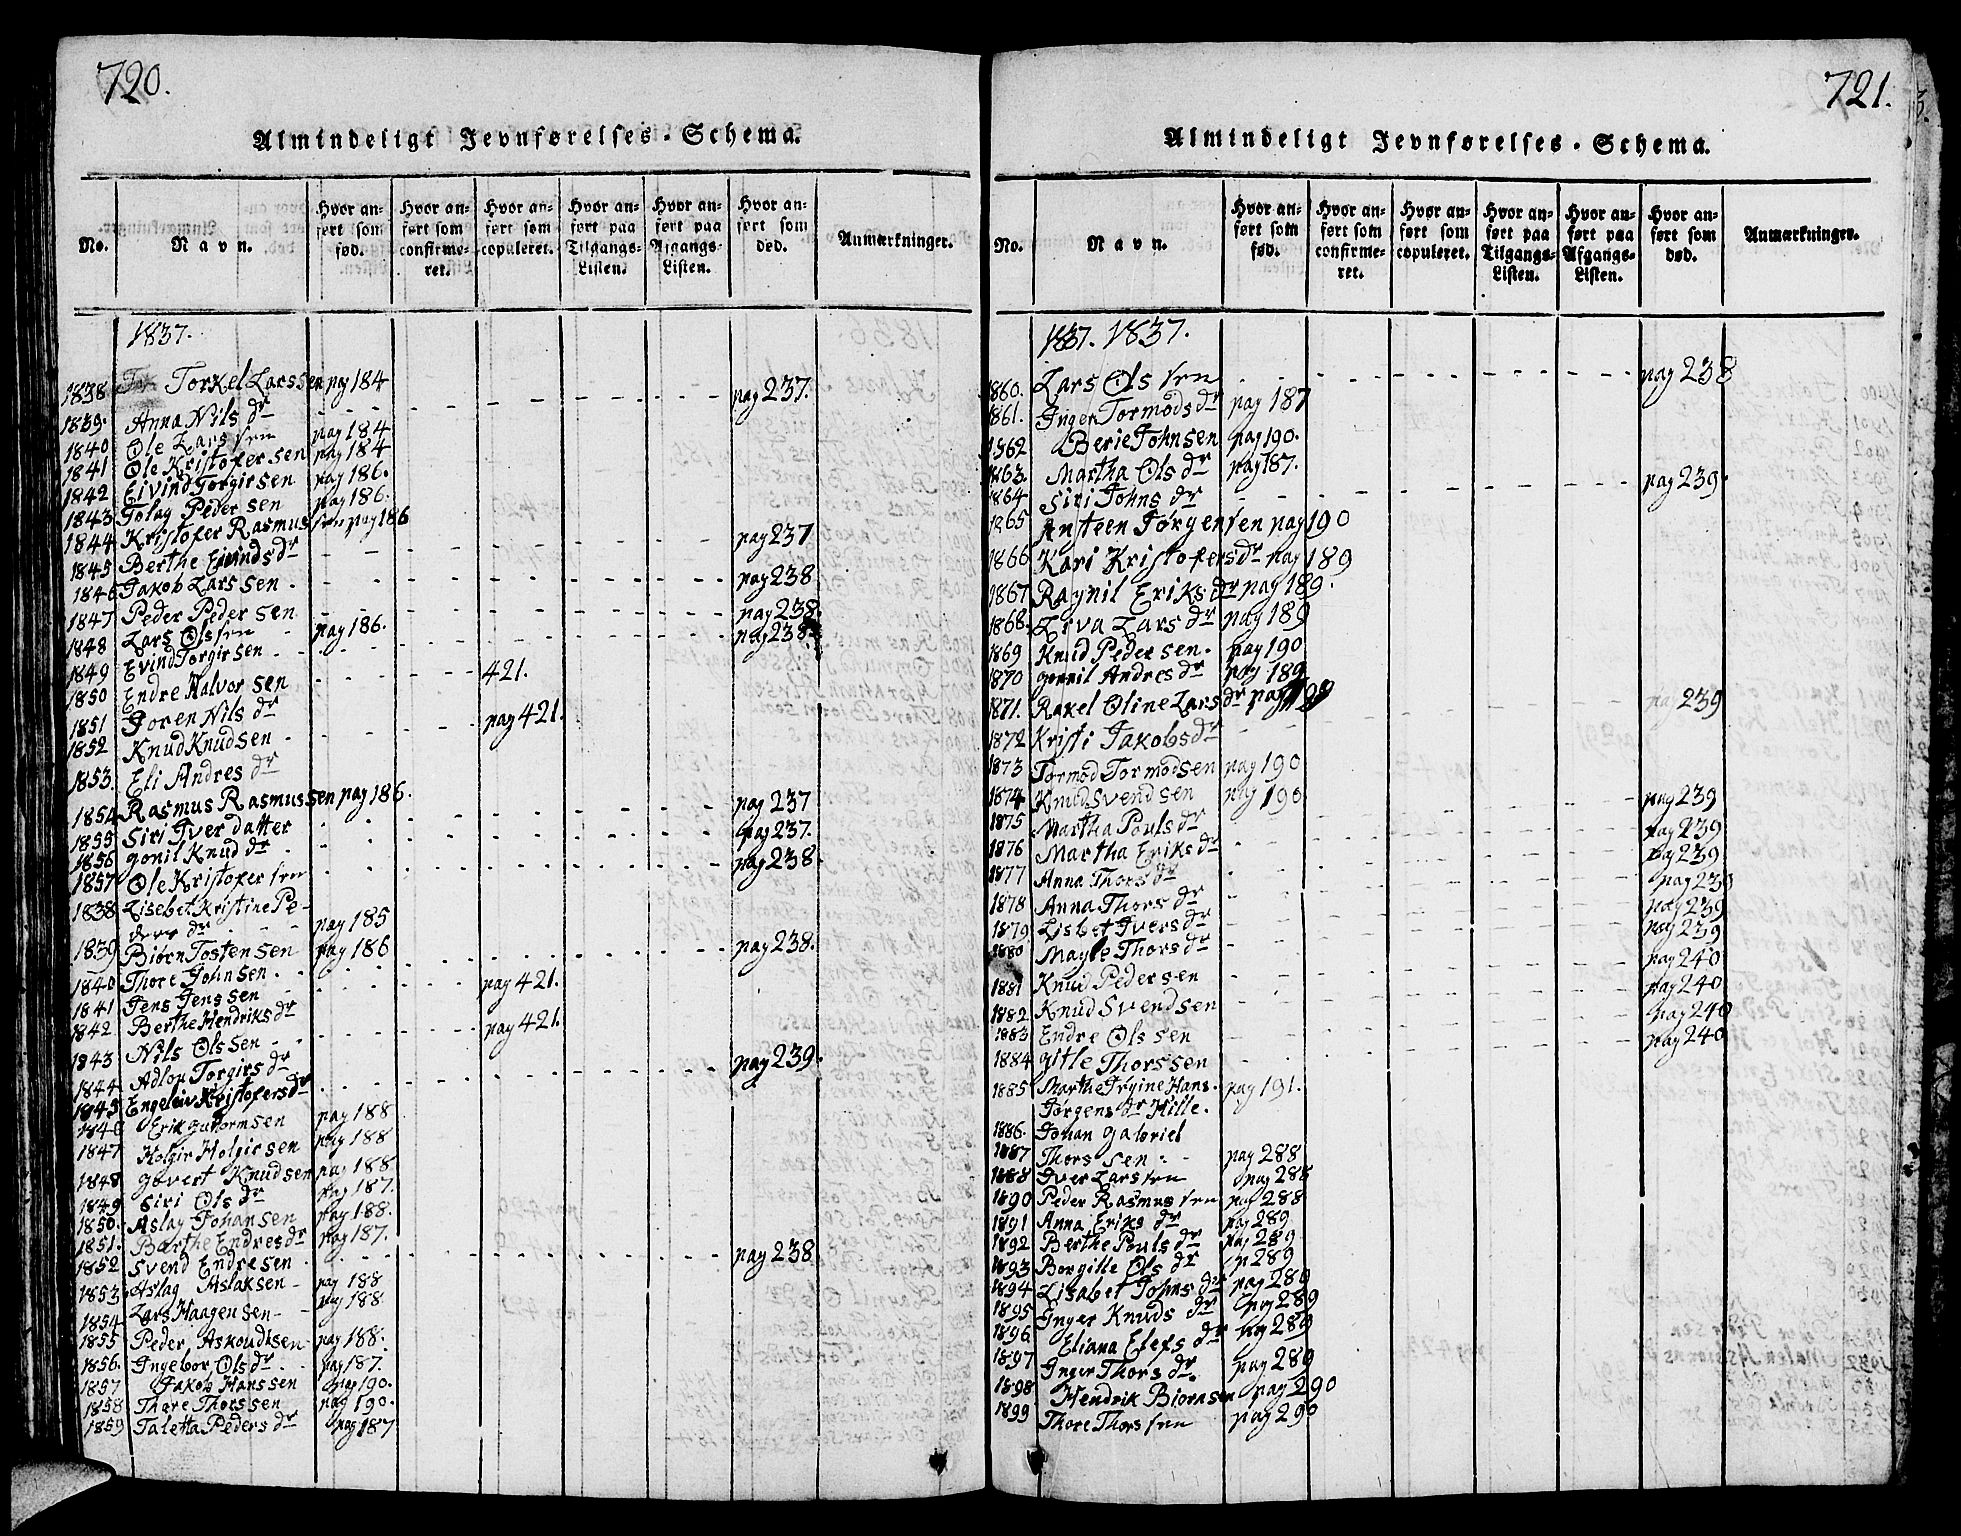 720.
Almindeligt Jevnførelses-Schema.
No.
Navn.
Hvor anført som fød.
Hvor anført som confirmeret.
Hvor anført som copuleret.
Hvor anført paa Tilgangs-Listen.
Hvor anført paa Afgangs-Listen.
Hvor anført som død.
Anmærkninger.
1837.
1838 Torkel Larssen pag 184
1839. Anna Nils dr pag 237.
1840 Ole Lars sen pag 184
1841 Ole Kristofer sen pag 184
1842 Eivind Torgirsen pag 186.
1843 Tolag Peder sen pag 186.
1844 Kristofer Rasmus sen pag 186
1845 Berthe Eivinds dr pag 237
1846 Jakob Lars sen pag 238
1847 Peder Peder sen pag 238.
1848 Lars Olssen pag 238.
1849 Evind Torgirsen pag 186.
1850 Endre Halvor sen 421.
1851 Joren Nils dr
1852 Knud Knudsen pag 421.
1853. Eli Andres dr
1854 Rasmus Rasmussen pag 186.
1855 Siri Iver datter pag 237
1856 gonil Knud dr pag 237.
1857 Ole Kristofer sen pag 238.
1838 Lisebet Kristine Pe-
ders dr pag 185
1839 Biørn Tosten sen pag 186
1840 Thore John sen pag 238.
1841 Jens Jens sen pag 421.
1842 Berthe Hendriks dr
1843 Nils Ols sen pag 421.
1844 Adlou Torgirs dr
1845 Engeleiv Kristofers dr pag 239.
1846 Erik gutormsen pag 188
1847 Holgir Holgir sen pag 188
1848 govert Knudsen pag 188
1849 Siri Ols dr pag 187.
1850. Aslag Johansen pag 188.
1851. Barthe Endres dr pag 187.
1852 Svend Endresen pag 238
1853 Aslag Aslaksen pag 188
1854 Lars Haagen sen pag 188
1855 Peder Askoudtsen pag 188.
1856. Ingebor Ols dr pag 187.
1857 Jakob Hanssen pag 190.
1858 Thore Thorssen pag 190.
1859 Taletta Peders dr pag 187
721.
Almindeligt Jevnførelses-Schema.
No.
Navn.
Hvor anført som fød.
Hvor anført som confirmeret.
Hvor anført som copuleret.
Hvor anført paa Tilgangs-Listen.
Hvor anført paa Afgangs-Listen.
Hvor anført som død.
Anmærkninger.
1837. 1837.
1860. Lars Ols sen pag 238
1861. Inger Tormods dr pag 187
1862 Berie Johnsen pag 190.
1863. Martha Ols dr pag 187.
1864 Siri Johns dr pag 239.
1865 Ansteen Jørgensen pag 190
1866 Kari Kristofers dr pag 189
1867 Ragnil Eriks dr pag 189.
1868. Erva Lars dr pag 189
1869 Knud Peder sen. pag 190
1870 gonnil Andres dr pag 189
1871. Rakel Oline Lars dr pag 189
1872 Kristi Jakobs dr pag 239
1873 Tormod Tormodsen pag 190
1874 Knud Svend sen pag 190
1875 Martha Pouls dr pag 239
1876 Martha Eriks dr pag 239
1877 Anna Thors dr pag 239
1878 Anna Thors dr pag 239
1879 Lisbet Ivers dr pag 239
1880 Mayle Thors dr pag 239
1881 Knud Peder sen pag 240
1882 Knud Svend sen pag 240
1883 Endre Ols sen pag 240
1884 gitle Thorssen pag 240
1885 Marthe Trgine Hans.
Jørgens dr Hille. pag 191.
1886. Johan gabriel
1887 Thors sen pag 288
1888 Iver Lars sen pag 288
1890 Peder Rasmus sen pag 288
1891 Anna Eriks dr pag 289
1892 Berthe Pouls dr pag 289
1893 Borgille Ols dr p 289
1894 Lisabet Johns dr pag 289
1895 Inger Knuds dr pag 289
1896 Eliana Elefs dr pag 289
1897 Inger Thors dr. pag 289
1898 Hendrik Biornsen pag 290
1899 Thore Thors sen pag 290